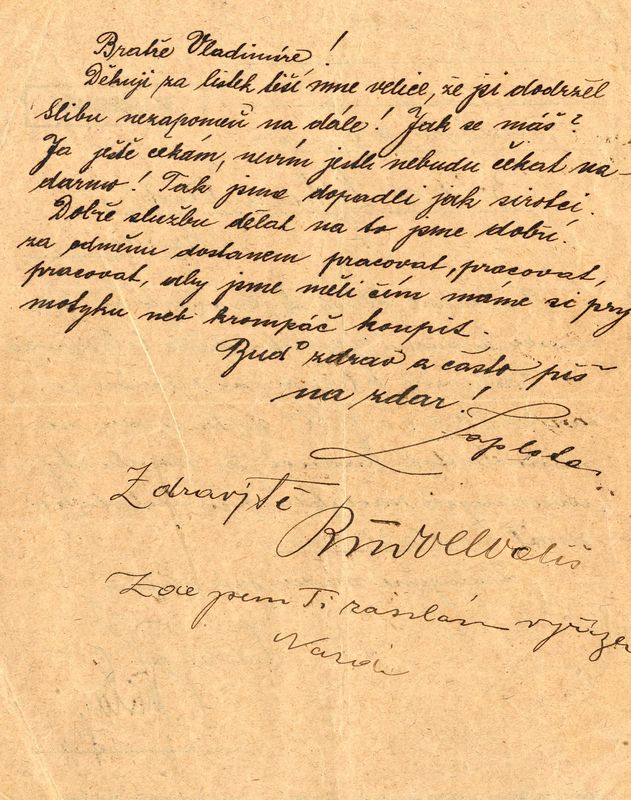 Bratře Vladimíre!
Děkuji za lístek, těší mne velice, že jsi dodržel
slibu nezapomeň na dále! Jak se máš?
Ja ještě čekám, nevím jestli nebudu čekat na-
darmo! Tak jsme dopadli jak sirotci.
Dobře službu dělat na to jsme dobrí.
za odměnu dostanem pracovat, pracovat,
pracovat, aby jsme měli čím máme si prý
motyku neb krompáč koupit.
Buď zdráv a často piš
na zdar!
Zdraví Tě
Zde jsem Ti zaslán